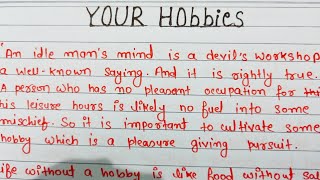 YOUR Hobbies
"An idle man's mind is a devil's workshop
a well-known saying. And it is rightly true.
A person who has no pleasant occupation for thi
his leisure hours is likely no fuel into some
mischief. So it is important to cultivate some
hobby which is a pleasure giving pursuit.
life without a hobby is like food without sal